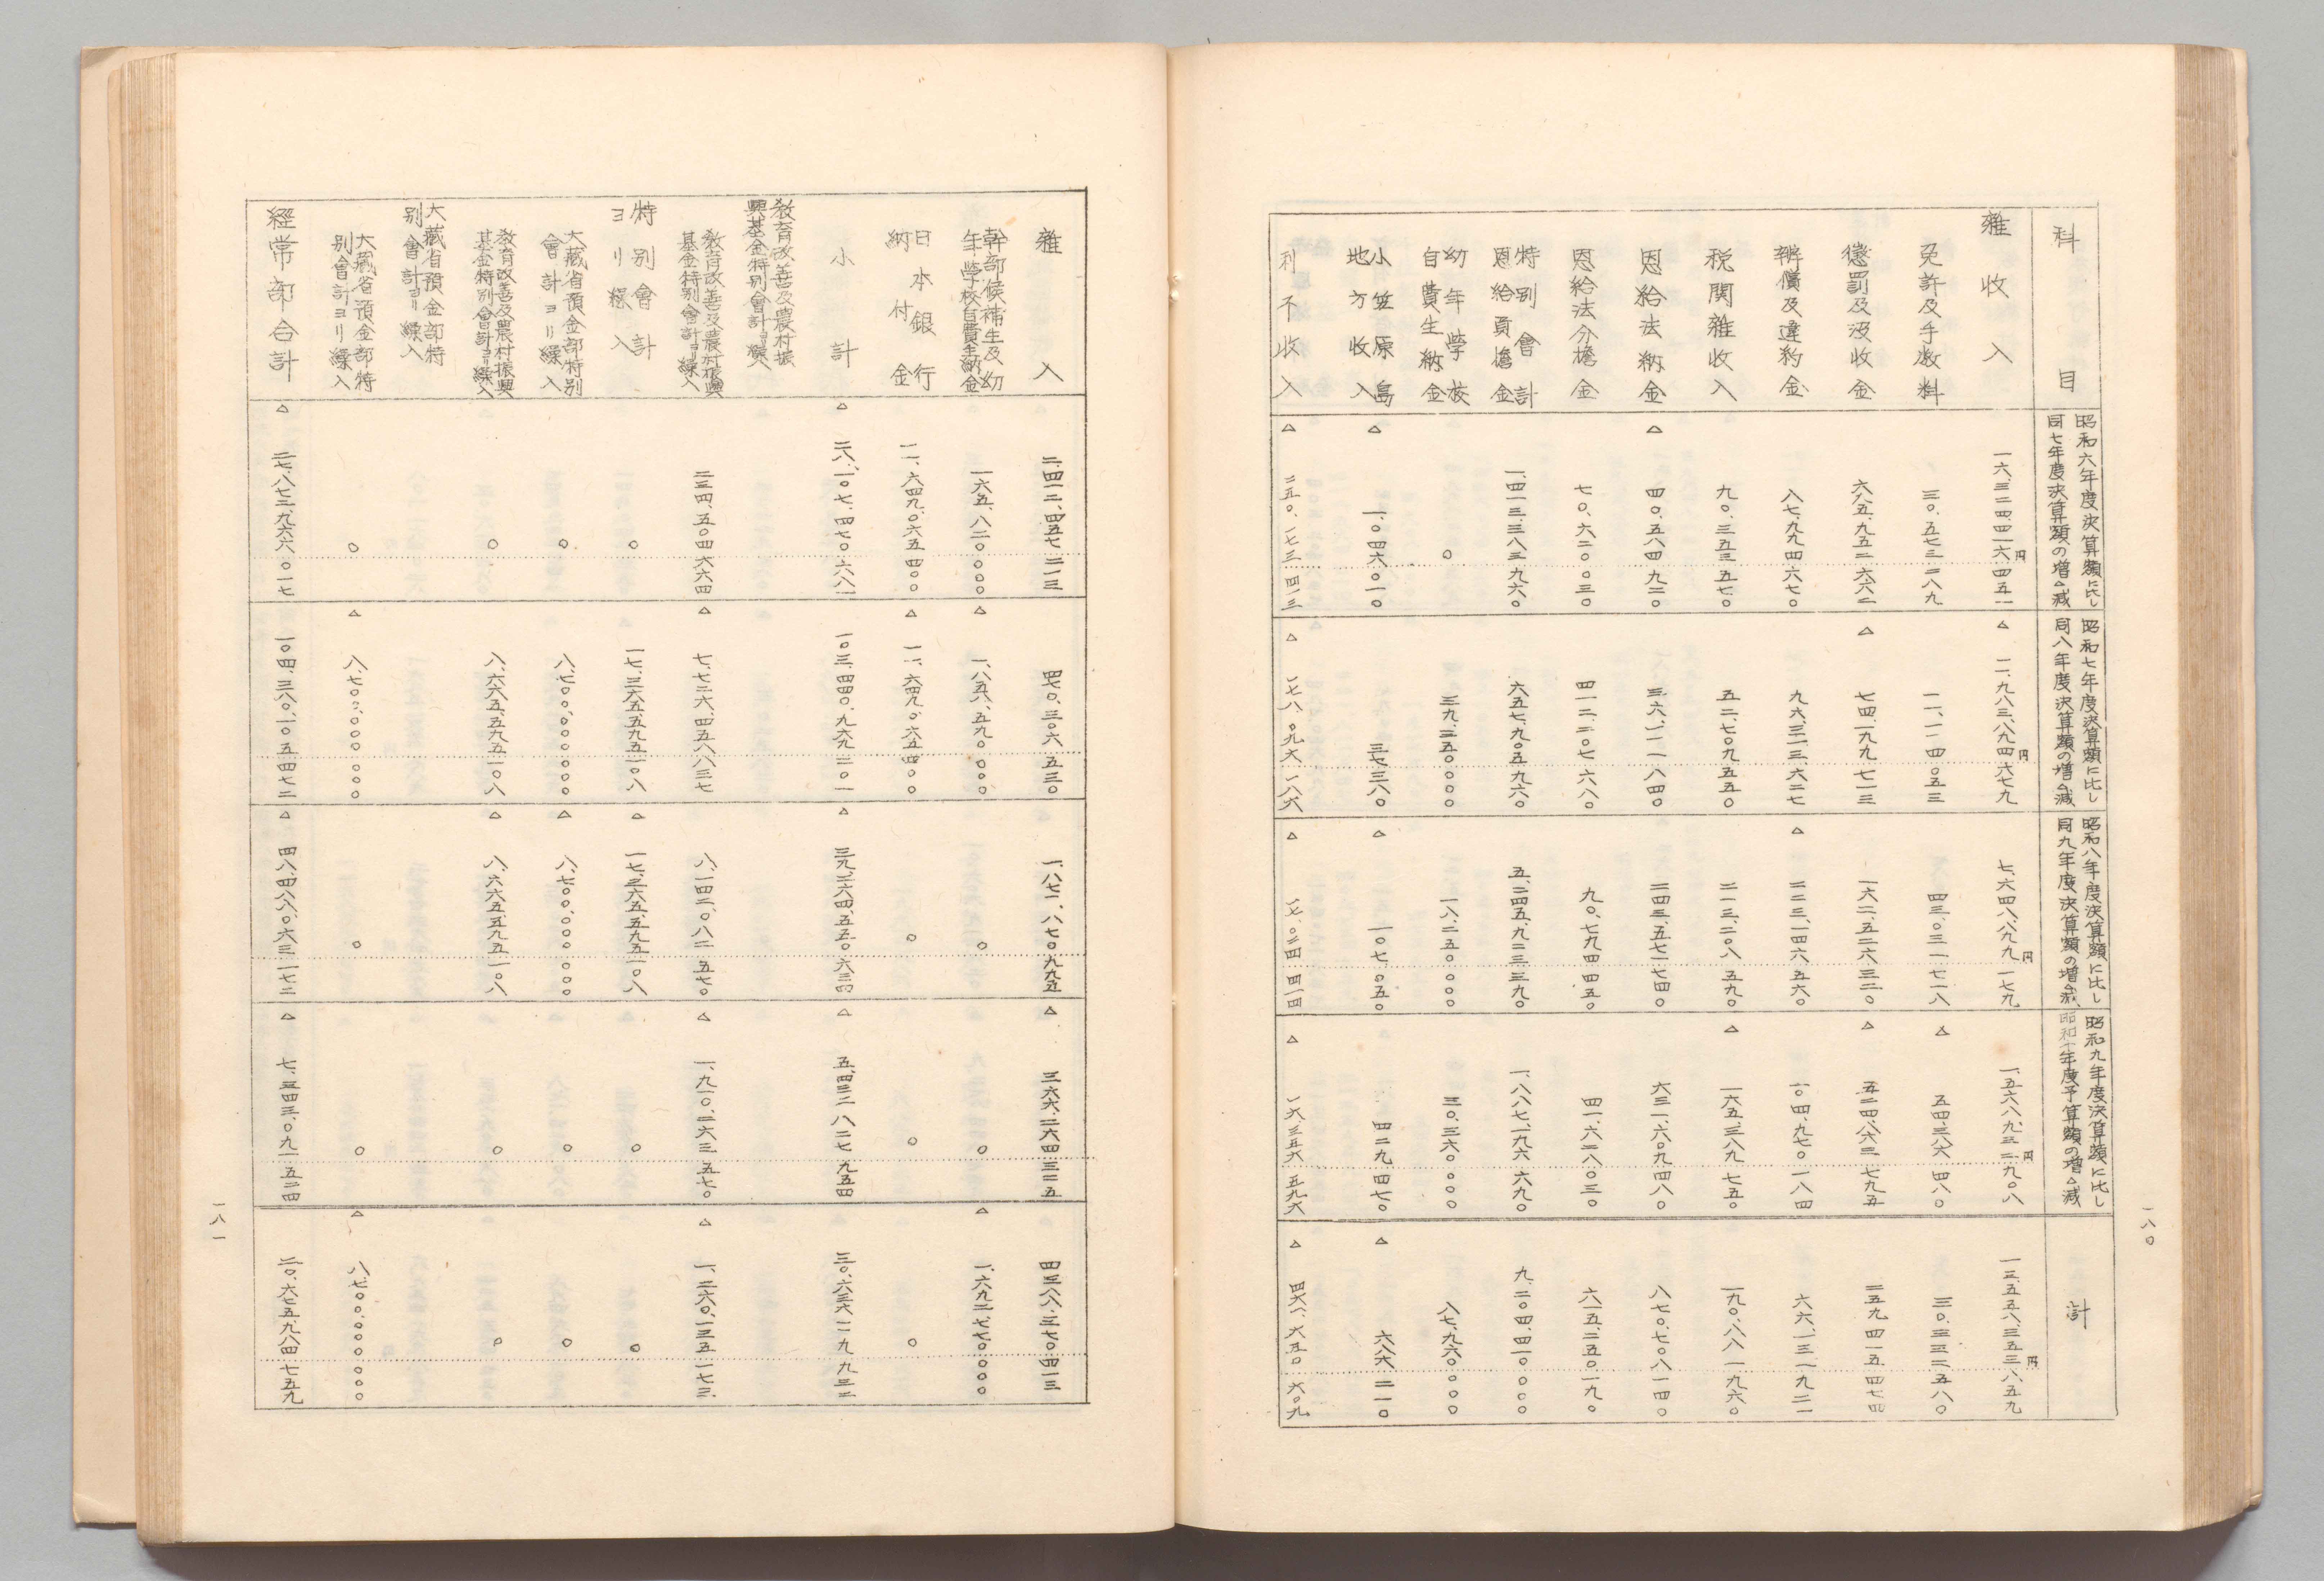 科目
昭和六年度決算額に比し
同七年度決算額の増△減
昭和七年度決算額に比し
同八年度決算額の増△減
昭和八年度決算額に比し
同九年度決算額の増△減
昭和九年度決算額に比し
昭和十年度予算額の増△減
計
雜收入
一六、三二四、四一六円四五一
△二、九八三、八九四円六七九
七、六四八、八九九円一七九
一、五六八、九三二円九〇八
免許及手数料
三〇、五七三二八九
一一、一一四〇五三
四三、〇三一七一八
△五四、三八六四八〇
三〇、三三二五八〇
懲罰及沒收金
六八五、九五二六六二
△七四、一九九七一三
一六二、五二六三二〇
△五一四、八六三七九五
二五九、四一五四七四
辨償及違約金
八七、九九四六七〇
九六、三一三六二七
△二二三、一四六五六〇
一〇四、九七〇一八四
六六、一三一九二一
税関雜收入
九〇、三五三五七〇
五二、七〇九五五〇
二一三、二〇八五九〇
△一六五、三八九七五〇
一九〇、八八一九六〇
恩給法納金
△四〇、五八四九二〇
三六、一一一八四〇
二四三、五七一七四〇
六三一、六〇九四八〇
八七〇、七〇八一四〇
恩給法分擔金
七〇、六二〇〇三〇
四一二、二〇七六八〇
九〇、七九四四五〇
四一、六二八〇三〇
六一五、二五〇一九〇
特别會計
恩給負擔金
一、四一三、三八三九六〇
六五七、九〇五九六〇
五、二四五、九二三三九〇
一、八八七、一九六六九〇
九、二〇四、四一〇〇〇〇
幼年學校
自費生納金
〇
三九、三五〇〇〇〇
一八、二五〇〇〇〇
三〇、三六〇〇〇〇
八七、九六〇〇〇〇
小笠原島
地方收入
△一、〇四六〇一〇
三七三八〇
△一〇七〇五〇
四二九四七〇
△六八六二一〇
利不收入
△二五〇、一七三四一三
△一七八、〇九六一八六
△一七、〇二四四一四
△一六、三五六五九六
△四六一、六五〇六〇九
一八〇
雜入
二、四一二、四五七二一三
四七〇、三〇六五三〇
一、八七一、八七〇九九五
△三六六、二六四三二五
四、三八八、三七〇四一三
幹部候補生及幼
年學校自費生納金
一六五、八二〇〇〇〇
△一、八五八、五九〇〇〇〇
〇
〇
△一、六九二、七七〇〇〇〇
日本銀行
納付金
一一、六四九、〇六五四〇〇
△一一、六四九、〇六五四〇〇
〇
〇
〇
小計
△二八、一〇七、四七〇六八一
一〇三、四四〇、九六九三〇一
△三九、二六四、五五〇六三四
△五、四三二、八二七九五四
三〇、六三六、一一九九三二
敎育改善及農村振
興基金特别會計ヨリ繰入
敎育改善及農村振興
基金特别會計ヨリ繰入
二三四、五〇四六六四
△七、七二六、四五八八三七
八、一四二、〇八二五七〇
△一、九一〇、二六三五七〇
△一、二六〇、一三五一七三
特别會計
ヨリ繰入
〇
△一七、三六五、五九五一〇八
△一七、三六五、五九五一〇八
〇
〇
大藏省預金部特别
會計ヨリ繰入
〇
八、七〇〇、〇〇〇〇〇〇
△八、七〇〇、〇〇〇〇〇〇
〇
〇
敎育改善及農村振興
基金特别會計ヨリ繰入
〇
八、六六五、五九五一〇八
△八、六六五、五九五一〇八
〇
〇
大藏省預金部特
别會計ヨリ繰入
大藏省預金部特
别會計ヨリ繰入
〇
△八、七〇〇、〇〇〇〇〇〇
〇
〇
△八、七〇〇、〇〇〇〇〇〇
經常部合計
△二七、八七二、九六六〇一七
一〇四、三八〇、一〇五四七二
△四八、四八八、〇六三一七二
△七、三四三、〇九一五二四
二〇、六七五、九八四七五九
一八一